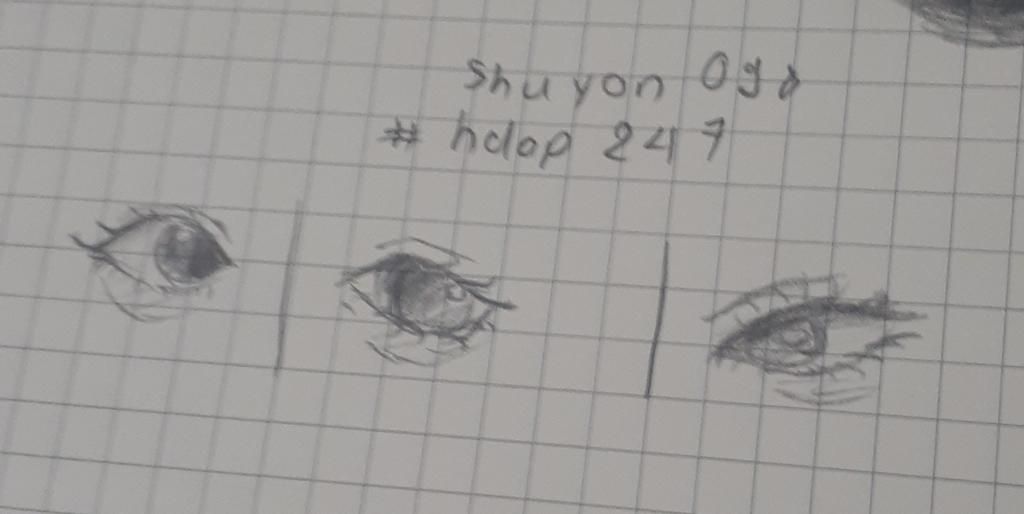 Shuyon Oga
# hdop 247